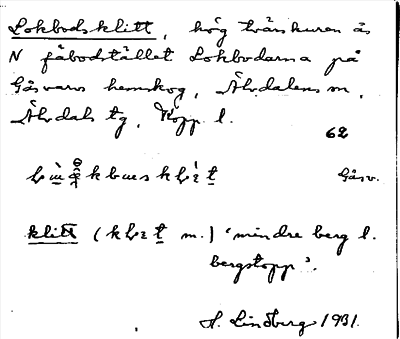 Lokbodsklitt, hög tvärskuren ås
N fäbodstället Lokbodarna på
Gåsvarvs hemskog, Älvdalens sn,
Älvdals tg, Kopp. l.
62
Gåsv.
klitt ( m.) 'mindre berg l.
bergstopp'.
H. Lindberg 1931.